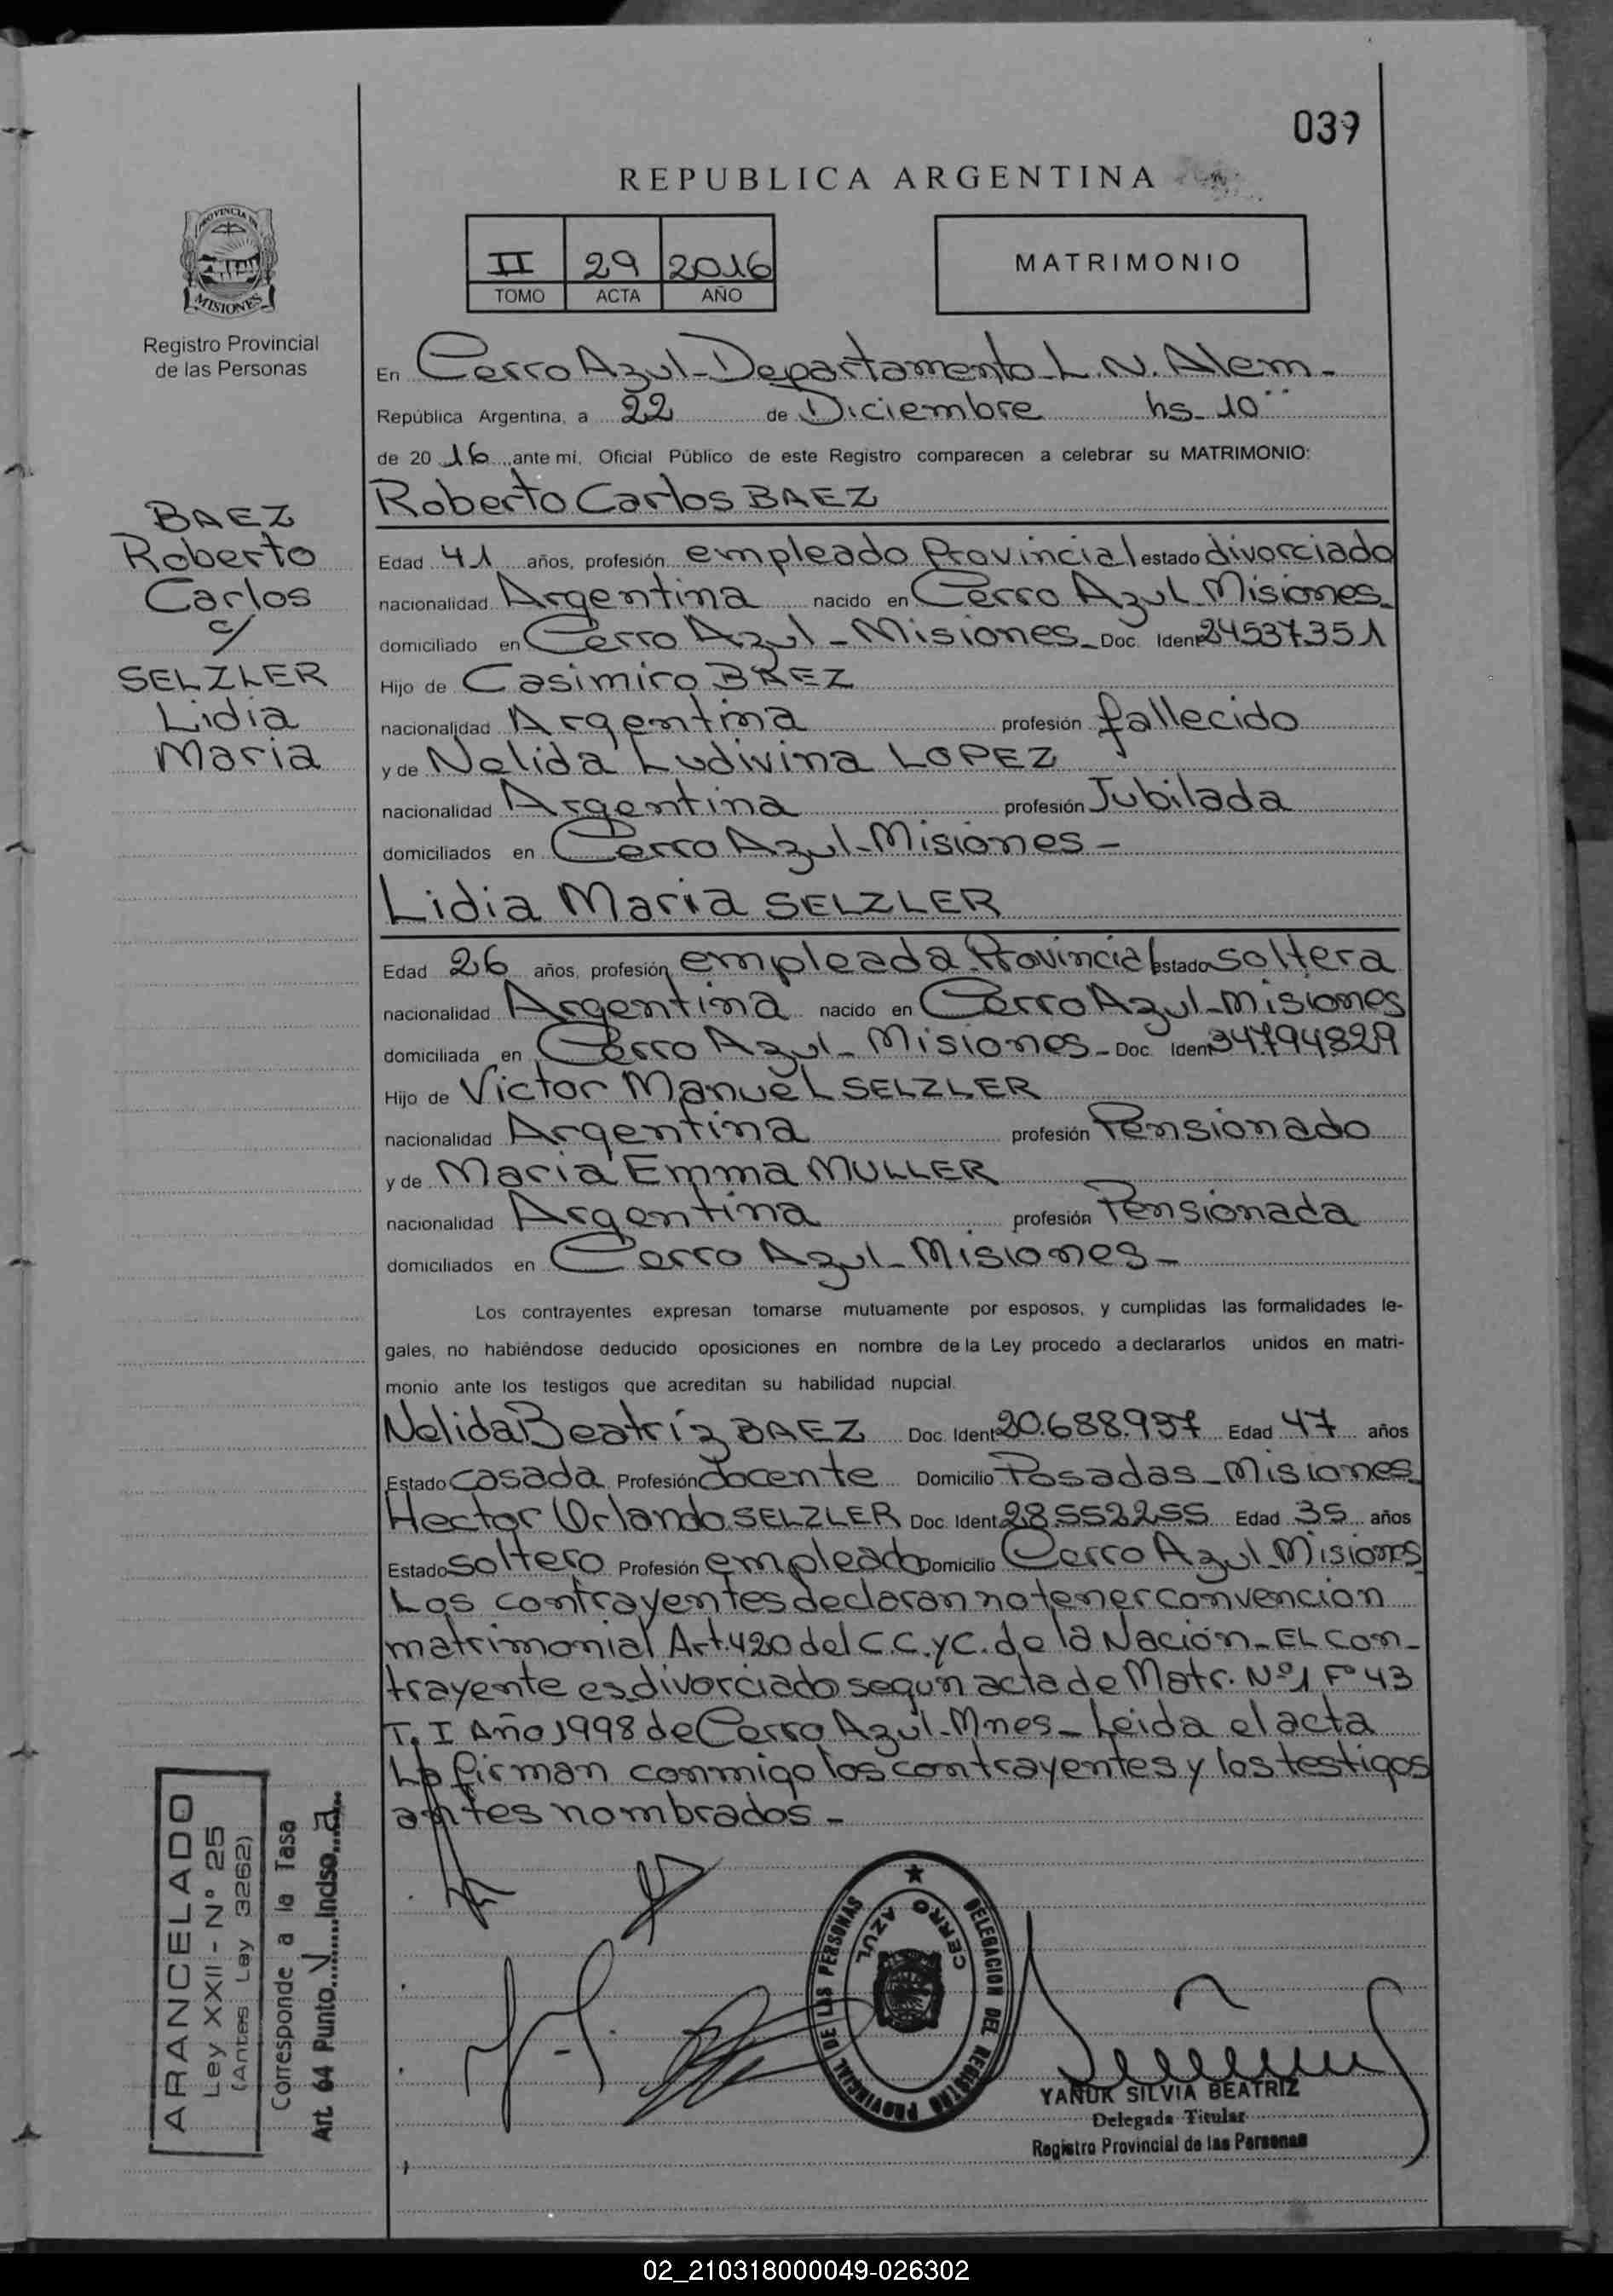 039
REPUBLICA ARGENTINA
PROVINCIA DE
MISIONES
Registro Provincial
de las Personas
II 29 2016
TOMO ACTA AÑO
MATRIMONIO
En Cerro Azul - Departamento L. N. Alem -
República Argentina, a 22 de Diciembre hs 10
de 20 16 ante mí, Oficial Público de este Registro comparecen a celebrar su MATRIMONIO:
Roberto Carlos BAEZ
BAEZ
Roberto
Carlos
c/
SELZLER
Lidia
Maria
Edad 41 años, profesión empleado Provincial estado divorciado
nacionalidad Argentina nacido en Cerro Azul Misiones
domiciliado en Cerro Azul - Misiones - Doc. Ident 24537351
Hijo de Casimiro BAEZ
nacionalidad Argentina profesión fallecido
y de Nelida Ludivina LOPEZ
nacionalidad Argentina profesión Jubilada
domiciliados en Cerro Azul - Misiones -
Lidia Maria SELZLER
Edad 26 años, profesión empleada Provincial estado soltera
nacionalidad Argentina nacido en Cerro Azul - Misiones
domiciliada en Cerro Azul - Misiones - Doc. Ident 34794829
Hijo de Victor Manuel SELZLER
nacionalidad Argentina profesión Pensionado
y de Maria Emma MULLER
nacionalidad Argentina profesión Pensionada
domiciliados en Cerro Azul - Misiones -
Los contrayentes expresan tomarse mutuamente por esposos, y cumplidas las formalidades le-
gales, no habiéndose deducido oposiciones en nombre de la Ley procedo a declararlos unidos en matri-
monio ante los testigos que acreditan su habilidad nupcial.
Nelida Beatríz BAEZ Doc. Ident 20.688.937 Edad 47 años
Estado casada Profesión docente Domicilio Posadas - Misiones
Hector Orlando SELZLER Doc. Ident 28.552255 Edad 35 años
Estado soltero Profesión empleado Domicilio Cerro Azul - Misiones
Los contrayentes declaran no tener convencion
matrimonial Art. 420 del C.C. y C. de la Nación - EL con-
trayente es divorciado segun acta de Matr. Nº 1 Fº 43
T. I Año 1998 de Cerro Azul - Mnes - Leida el acta
La firman conmigo los contrayentes y los testigos
antes nombrados -
ARANCELADO
Ley XXII - Nº 25
(Antes Ley 3262)
Corresponde a la Tasa
Art. 64 Punto V Inciso a
DELEGACION DEL REGISTRO PROVINCIAL DE LAS PERSONAS
CERRO AZUL
YANUK SILVIA BEATRIZ
Delegada Titular
Registro Provincial de las Personas
02_210318000049-026302